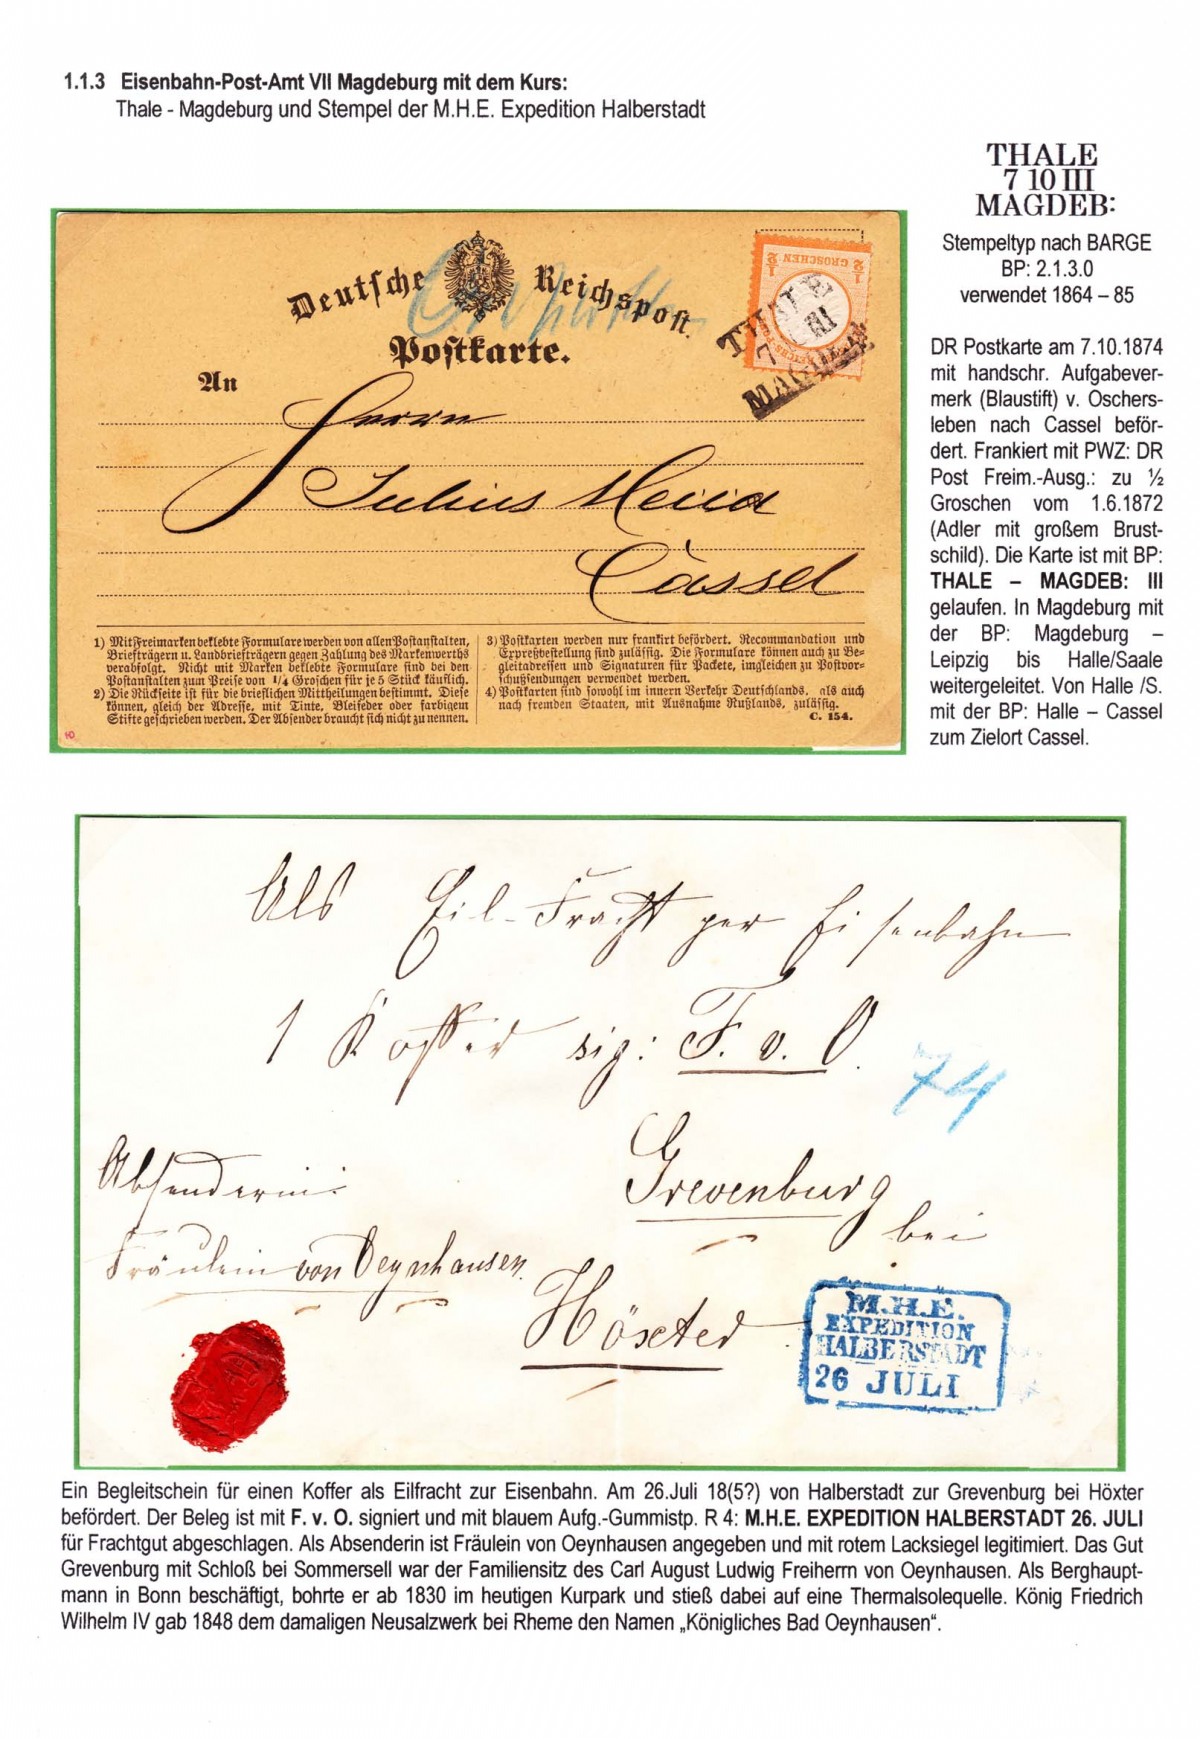 1.1.3 Eisenbahn-Post-Amt VII Magdeburg mit dem Kurs:
Thale - Magdeburg und Stempel der M.H.E. Expedition Halberstadt
THALE
7 10 III
MAGDEB:
Stempeltyp nach BARGE
BP: 2.1.3.0
verwendet 1864 – 85
DR Postkarte am 7.10.1874
mit handschr. Aufgabever-
merk (Blaustift) v. Oschers-
leben nach Cassel beför-
dert. Frankiert mit PWZ: DR
Post Freim.-Ausg.: zu ½
Groschen vom 1.6.1872
(Adler mit großem Brust-
schild). Die Karte ist mit BP:
THALE – MAGDEB: III
gelaufen. In Magdeburg mit
der BP: Magdeburg –
Leipzig bis Halle/Saale
weitergeleitet. Von Halle /S.
mit der BP: Halle – Cassel
zum Zielort Cassel.
Deutsche Reichspost.
Postkarte.
An
Herrn
Julius
Cassel
½ GROSCHEN ½
THALE
7 III
MAGDEB:
1) Mit Freimarken beklebte Formulare werden von allen Postanstalten,
Briefträgern u. Landbriefträgern gegen Zahlung des Markenwerths
verabfolgt. Nicht mit Marken beklebte Formulare sind bei den
Postanstalten zum Preise von 1/4 Groschen für je 5 Stück käuflich.
2) Die Rückseite ist für die brieflichen Mittheilungen bestimmt. Diese
können, gleich der Adresse, mit Tinte, Bleifeder oder farbigem
Stifte geschrieben werden. Der Absender braucht sich nicht zu nennen.
3) Postkarten werden nur frankirt befördert. Recommandation und
Expreßbestellung sind zulässig. Die Formulare können auch zu Be-
gleitadressen und Signaturen für Packete, imgleichen zu Postvor-
schußsendungen verwendet werden.
4) Postkarten sind sowohl im innern Verkehr Deutschlands, als auch
nach fremden Staaten, mit Ausnahme Rußlands, zulässig.
C. 154.
Als Eil-Fracht per Eisenbahn
1 Koffer sig: F. v. O.
74
Absenderin:
Grevenburg
bei
Fräulein von Oeynhausen.
Höxter
M.H.E.
EXPEDITION
HALBERSTADT
26 JULI
Ein Begleitschein für einen Koffer als Eilfracht zur Eisenbahn. Am 26.Juli 18(5?) von Halberstadt zur Grevenburg bei Höxter
befördert. Der Beleg ist mit F. v. O. signiert und mit blauem Aufg.-Gummistp. R 4: M.H.E. EXPEDITION HALBERSTADT 26. JULI
für Frachtgut abgeschlagen. Als Absenderin ist Fräulein von Oeynhausen angegeben und mit rotem Lacksiegel legitimiert. Das Gut
Grevenburg mit Schloß bei Sommersell war der Familiensitz des Carl August Ludwig Freiherrn von Oeynhausen. Als Berghaupt-
mann in Bonn beschäftigt, bohrte er ab 1830 im heutigen Kurpark und stieß dabei auf eine Thermalsolequelle. König Friedrich
Wilhelm IV gab 1848 dem damaligen Neusalzwerk bei Rheme den Namen „Königliches Bad Oeynhausen“.